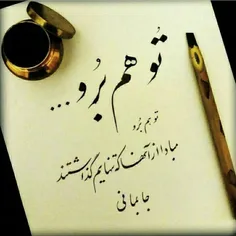 تو هم برُو...
تو هم برُو
مبادا از آنها که تنهایم گذاشتند
جا بمانی